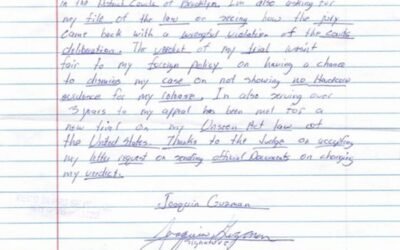 in the District Courts of Brooklyn. Im also asking for
my file of the law or seeing how the jury
came back with a wrongful violation of the courts
deliberation. The verdict of my trial wasnt
fair to my foreign policy on having a chance
to dismiss my case on not showing no Hardcore
evidence for my release. In also serving over
3 years to my appeal has been met for a
new trial on my Unseen Act law out
the United States. Thanks to the Judge on accepting
my little request on sending official Documents on changing
my verdict.
Joaquin Guzman
Joaquin Guzman
signature